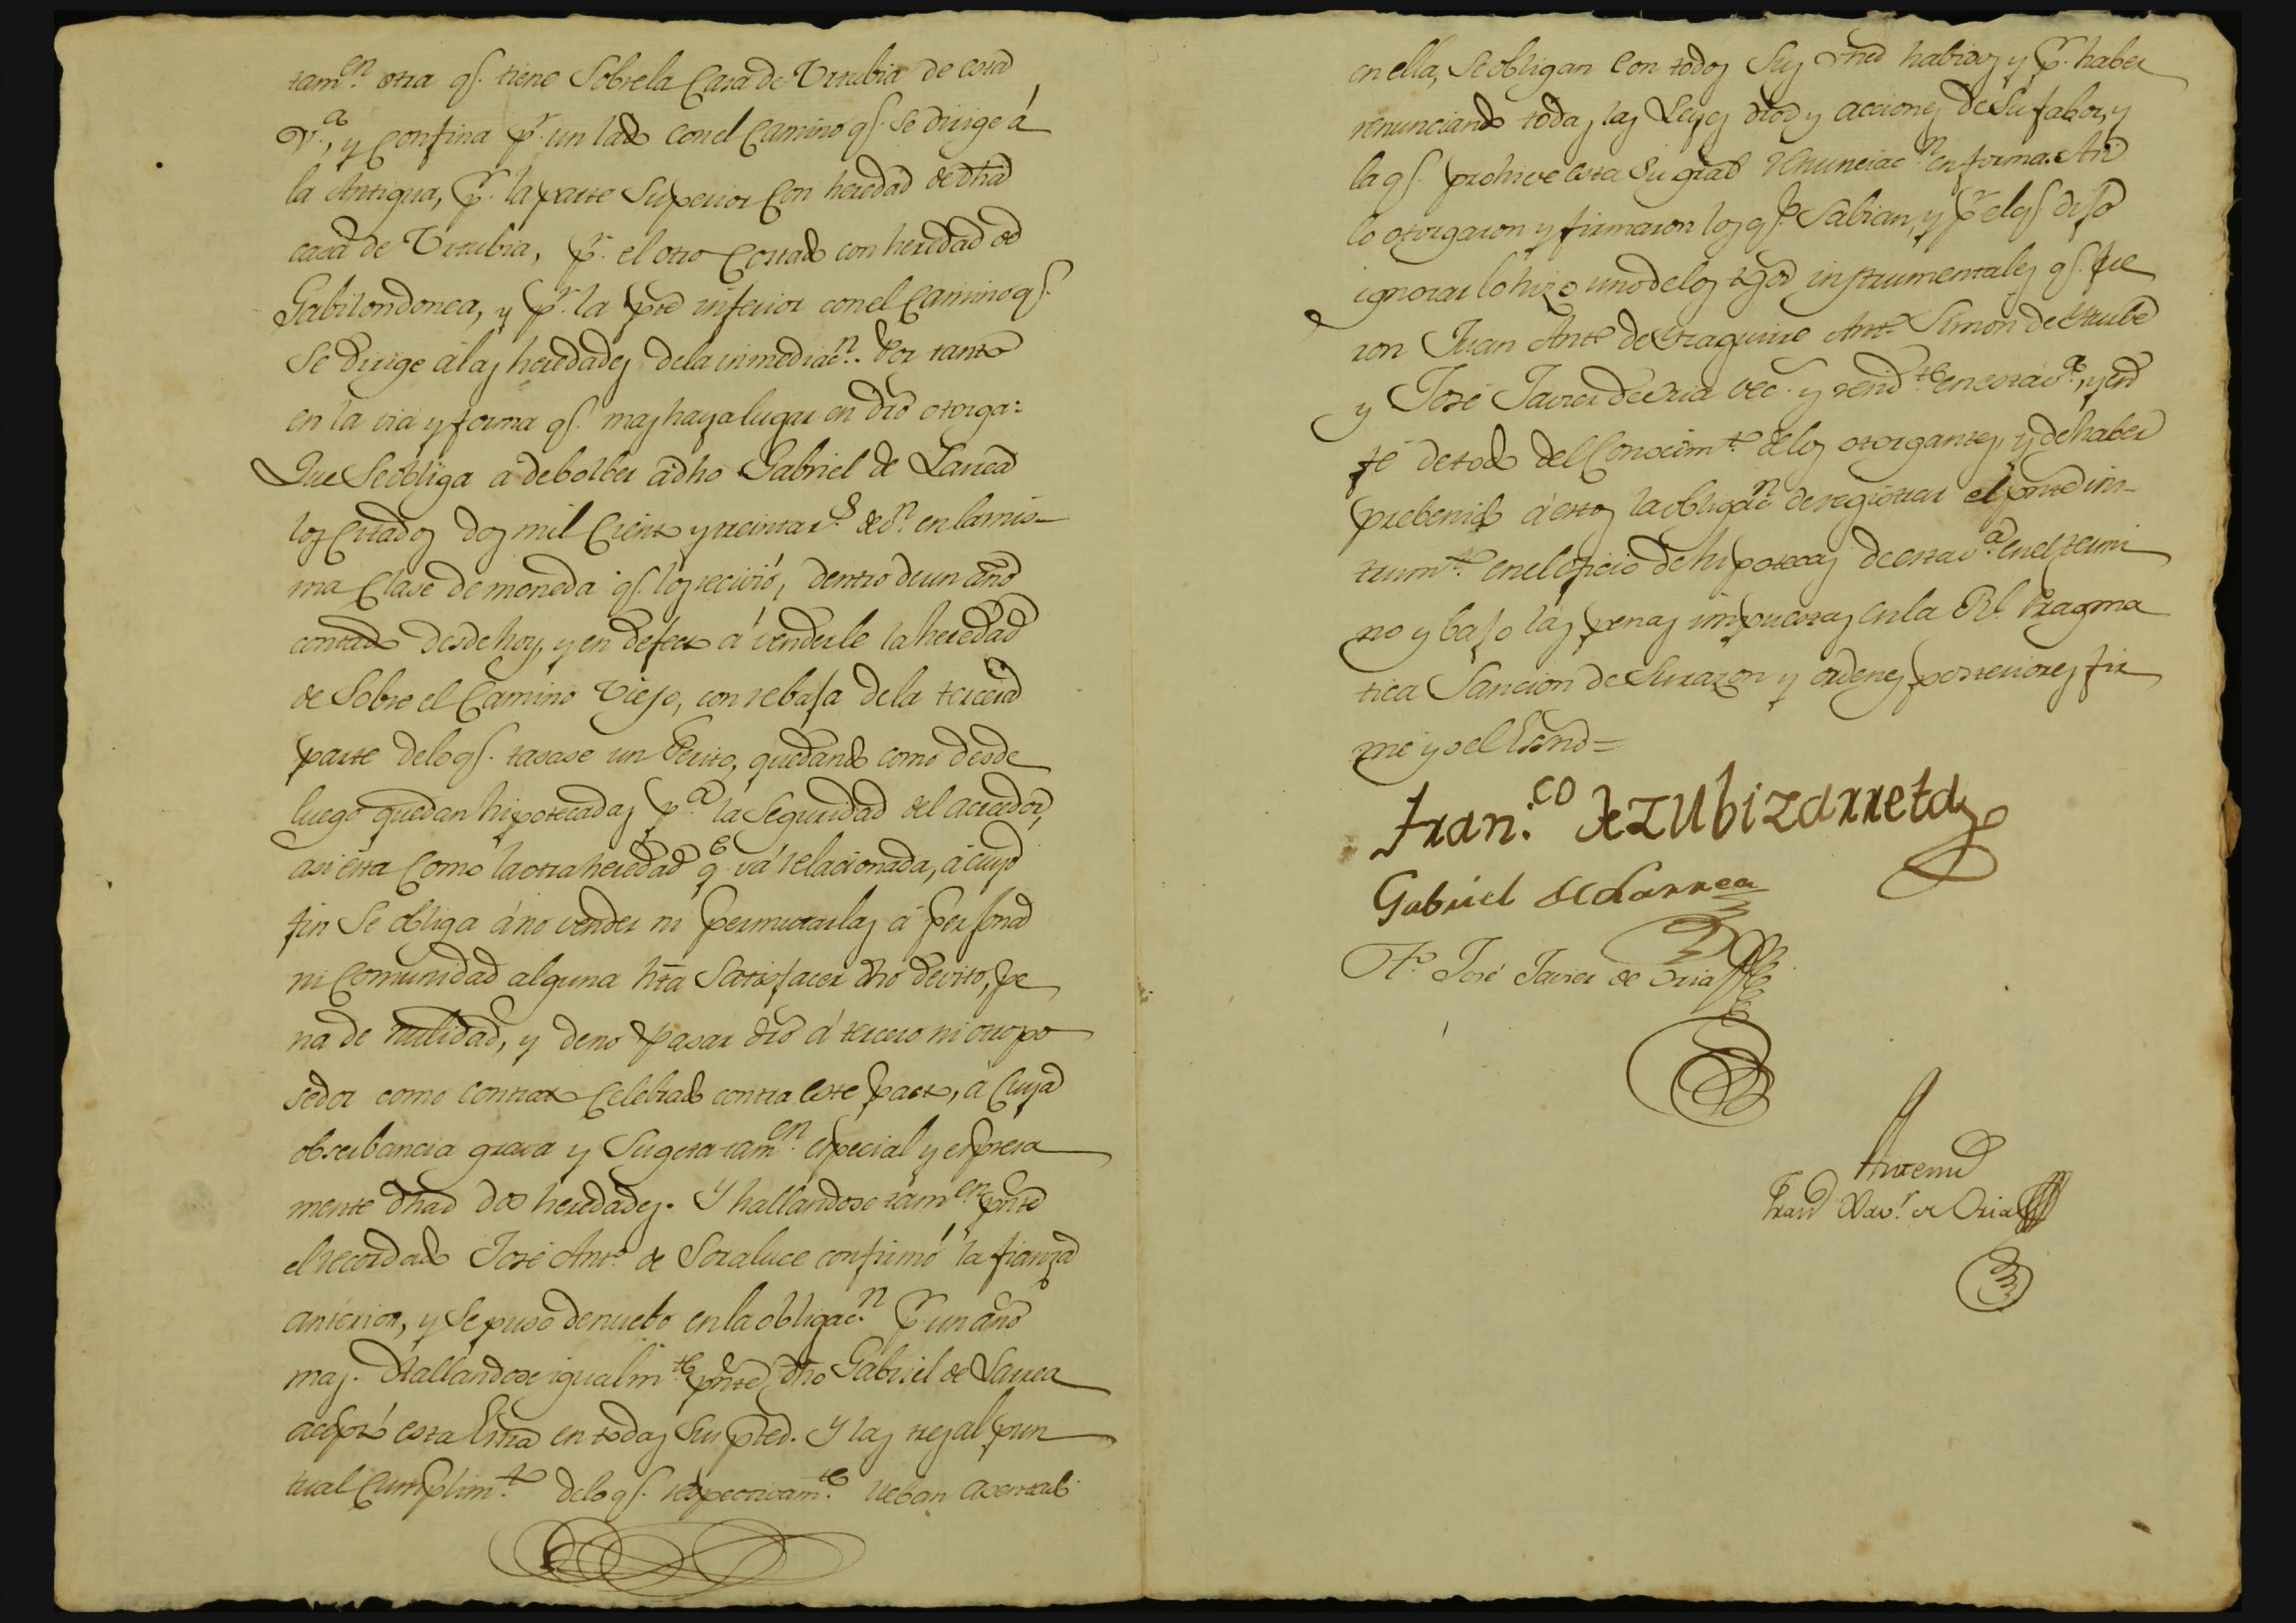 tam.en otra q.e tiene Sobre la Casa de Vrrubia de esta
V.a, y Confina p.r un lado con el Camino q.e se dirige á
la Antigua, p.r la parte Superior Con heredad de dha
casa de Vrrubia, p.r el otro Costado con heredad de
Gabilondonea, y p.r la pte inferior con el Camino q.e
se dirige á las heredades dela inmediac.n. Por tanto
en la via y forma q.e mas haya lugar en dro otorga:
Que Se obliga a debolber a dho Gabriel de Larrea
los Citados dos mil Ciento y treinta r.s de v.n en la mis-
ma Clase de moneda q.e los recivió, dentro de un año
contado desde hoy, y en defecto á venderle la heredad
de Sobre el Camino Viejo, con rebaja de la tercera
parte delo q.e tasase un Perito, quedando como desde
luego quedan hipotecadas p.a la Seguridad del acreador,
asi esta Como la otra heredad q.e vá relacionada, á cuyo
fin Se obliga á no vender ni permutarlas á persona
ni Comunidad alguna hta Satisfacer dho devito, pe
na de nulidad, y de no pasar dro á tercero ni otro po
sedor como contrato Celebrado contra este pacto, á Cuya
obserbancia grava y Sugeta tam.en especial y espresa
mente dhas dos heredades. Y hallandose tam.en pnte
el recordado José Ant.o de Soraluce confirmó la fianza
anterior, y Se puso de nuebo en la obligac.n p.r un año
mas. Hallandose igualm.te pnte dho Gabriel de Larrea
aceptó esta Esra en todas Sus ptes. Y las tres al pun
tual Cumplim.to delo q.e respectivam.te lleban asentado
en ella, Se obligan Con todos Sus vnes habidos y p.r haber
renunciando todas las Leyes dros y acciones de Su fabor, y
la q.e prohive esta Su gral renunciac.n en forma. Asi
lo otorgaron y firmaron los q.e Sabian, y p.r el q.e dijo
ignorar lo hizo uno de los tgos instrumentales q.e fue
ron Juan Ant.o de Eraguirre Ant.o Simon de Yrube
y José Javier de Oria vec.s y resid.tes en esta V.a, y en
fé de todo del Conocim.to de los otorgantes, y de haber
prebenido á estos la obligac.n de registrar el pnte ins-
trum.to en el oficio de hipotecas de esta V.a en el termi
no y bajo las penas impuestas en la Rl. Pragma
tica Sancion de Su razon y ordenes posteriores fir
mé yo el Esno =
Fran.co de Zubizarreta
Gabriel de Larrea
T.o José Javier de Oria
Antemi
Fran.co Xav.r de Oria